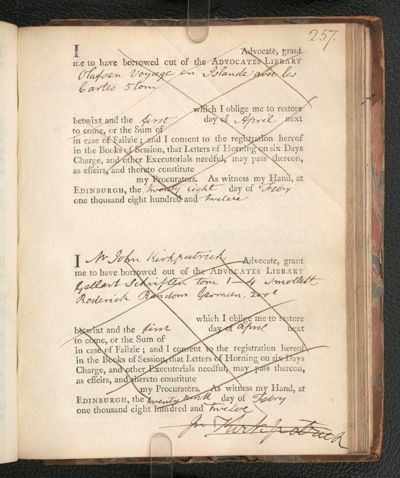 257.
I Advocate, grant
me to have borrowed out of the ADVOCATES LIBRARY
Olafsen Voyage en Islande avec les
Cartes 5 tom
which I oblige me to restore
betwixt and the first day of April next
to come, or the Sum of
in case of Failzie; and I consent to the registration hereof
in the Books of Session, that Letters of Horning on six Days
Charge, and other Executorials needful, may pass thereon,
as effeirs, and thereto constitute
my Procurators. As witness my Hand, at
EDINBURGH, the twenty eight day of Febry
one thousand eight hundred and twelve
I Mr John Kirkpatrick Advocate, grant
me to have borrowed out of the ADVOCATES LIBRARY
Gellert Schriften tom 1-4 Smollett
Roderick Random German. 2 vol
which I oblige me to restore
betwixt and the first day of April next
to come, or the Sum of
in case of Failzie; and I consent to the registration hereof
in the Books of Session, that Letters of Horning on six Days
Charge, and other Executorials needful, may pass thereon,
as effeirs, and thereto constitute
my Procurators. As witness my Hand, at
EDINBURGH, the twenty ninth day of Febry
one thousand eight hundred and twelve
Jn Kirkpatrick